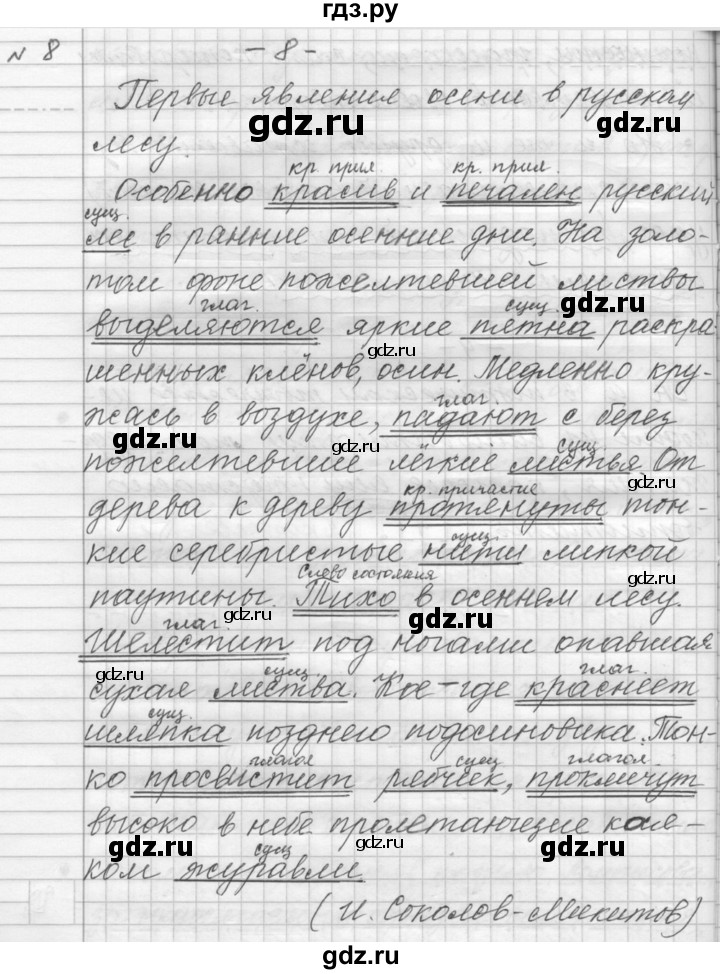 гдз.ру
№ 8 - 8 -
Первые явления осени в русском
gdz.ru gdz.ru
лесу.
кр. прил. кр. прил.
Особенно красив и печален русский
сущ.
лес в ранние осенние дни. На золо-
том фоне пожелтевшей листвы
глаг. сущ. gdz.ru
выделяются яркие пятна раскра
gdz.ru
шенных клёнов, осин. Медленно кру-
глаг.
жась в воздухе, падают с берез
gdz.ru gdz.ru сущ
пожелтевшие лёгкие листья. От
кр. причастие gdz.ru
дерева к дереву протянуты тон-
сущ.
кие серебристые нити липкой
gdz.ru Слово состояния
паутины. Тихо в осеннем лесу.
глаг. gdz.ru
Шелестит под ногами опавшая
сущ. глаг. gdz.ru
сухая листва. Кое-где краснеет
сущ.
шляпка позднего подосиновика. Тон-
глагол сущ глагол.
ко просвистит рябчик, прокличут
высоко в небе пролетающие кося-
gdz.ru сущ gdz.ru
ком журавли
(И. Соколов-Микитов)
gdz.ru